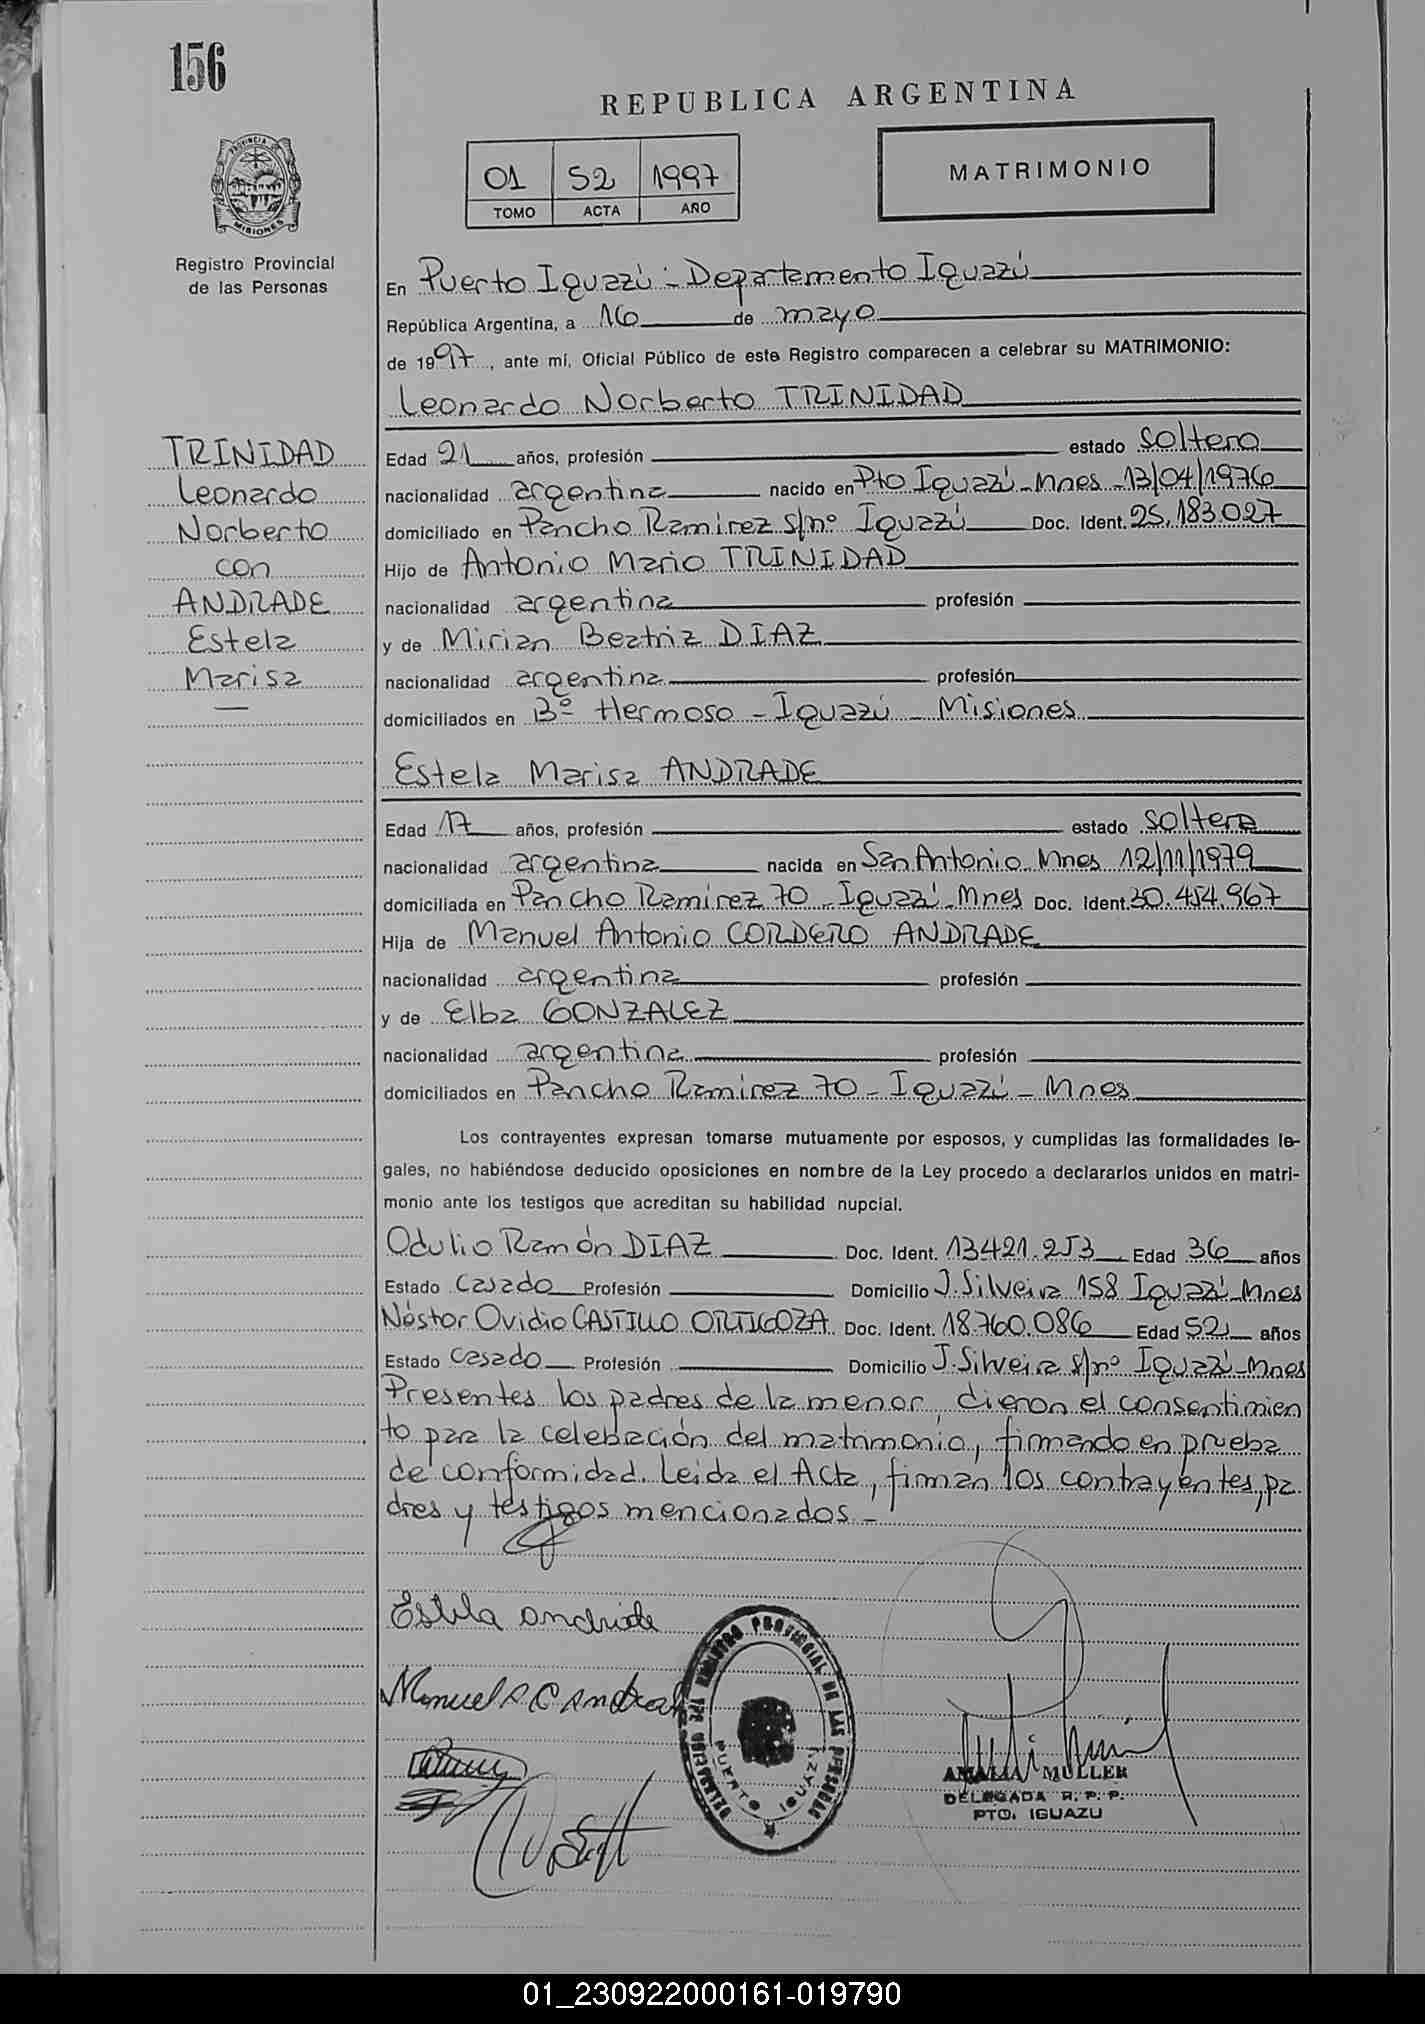 156
REPUBLICA ARGENTINA
01 52 1997
TOMO ACTA AÑO
MATRIMONIO
PROVINCIA DE
MISIONES
Registro Provincial
de las Personas
En Puerto Iguazú - Departamento Iguazú
República Argentina, a 16 de mayo
de 1997, ante mí, Oficial Público de este Registro comparecen a celebrar su MATRIMONIO:
Leonardo Norberto TRINIDAD
TRINIDAD
Leonardo
Norberto
con
ANDRADE
Estela
Marisa
Edad 21 años, profesión estado soltero
nacionalidad argentina nacido en Pto Iguazú - Mnes - 13/04/1976
domiciliado en Pancho Ramirez s/nº Iguazú Doc. Ident. 25.183.027
Hijo de Antonio Mario TRINIDAD
nacionalidad argentina profesión
y de Mirian Beatriz DIAZ
nacionalidad argentina profesión
domiciliados en Bº Hermoso - Iguazú - Misiones
Estela Marisa ANDRADE
Edad 17 años, profesión estado soltera
nacionalidad argentina nacida en San Antonio Mnes 12/11/1979
domiciliada en Pancho Ramirez 70 - Iguazú - Mnes Doc. Ident. 30.454.967
Hija de Manuel Antonio CORDERO ANDRADE
nacionalidad argentina profesión
y de Elba GONZALEZ
nacionalidad argentina profesión
domiciliados en Pancho Ramirez 70 - Iguazú - Mnes
Los contrayentes expresan tomarse mutuamente por esposos, y cumplidas las formalidades le-
gales, no habiéndose deducido oposiciones en nombre de la Ley procedo a declararlos unidos en matri-
monio ante los testigos que acreditan su habilidad nupcial.
Odulio Ramón DIAZ Doc. Ident. 13421.253 Edad 36 años
Estado casado Profesión Domicilio J. Silveira 158 Iguazú - Mnes
Néstor Ovidio CASTILLO ORTIGOZA Doc. Ident. 18.760.086 Edad 52 años
Estado casado Profesión Domicilio J. Silveira s/nº Iguazú - Mnes
Presentes los padres de la menor, dieron el consentimien
to para la celebración del matrimonio, firmando en prueba
de conformidad. Leida el Acta, firman los contrayentes, pa
dres y testigos mencionados. -
Estela andrade
Manuel A C Andrade
REGISTRO PROVINCIAL DE LAS PERSONAS
PUERTO IGUAZU
AMALIA MULLER
DELEGADA R. P. P.
PTO. IGUAZU
01_230922000161-019790